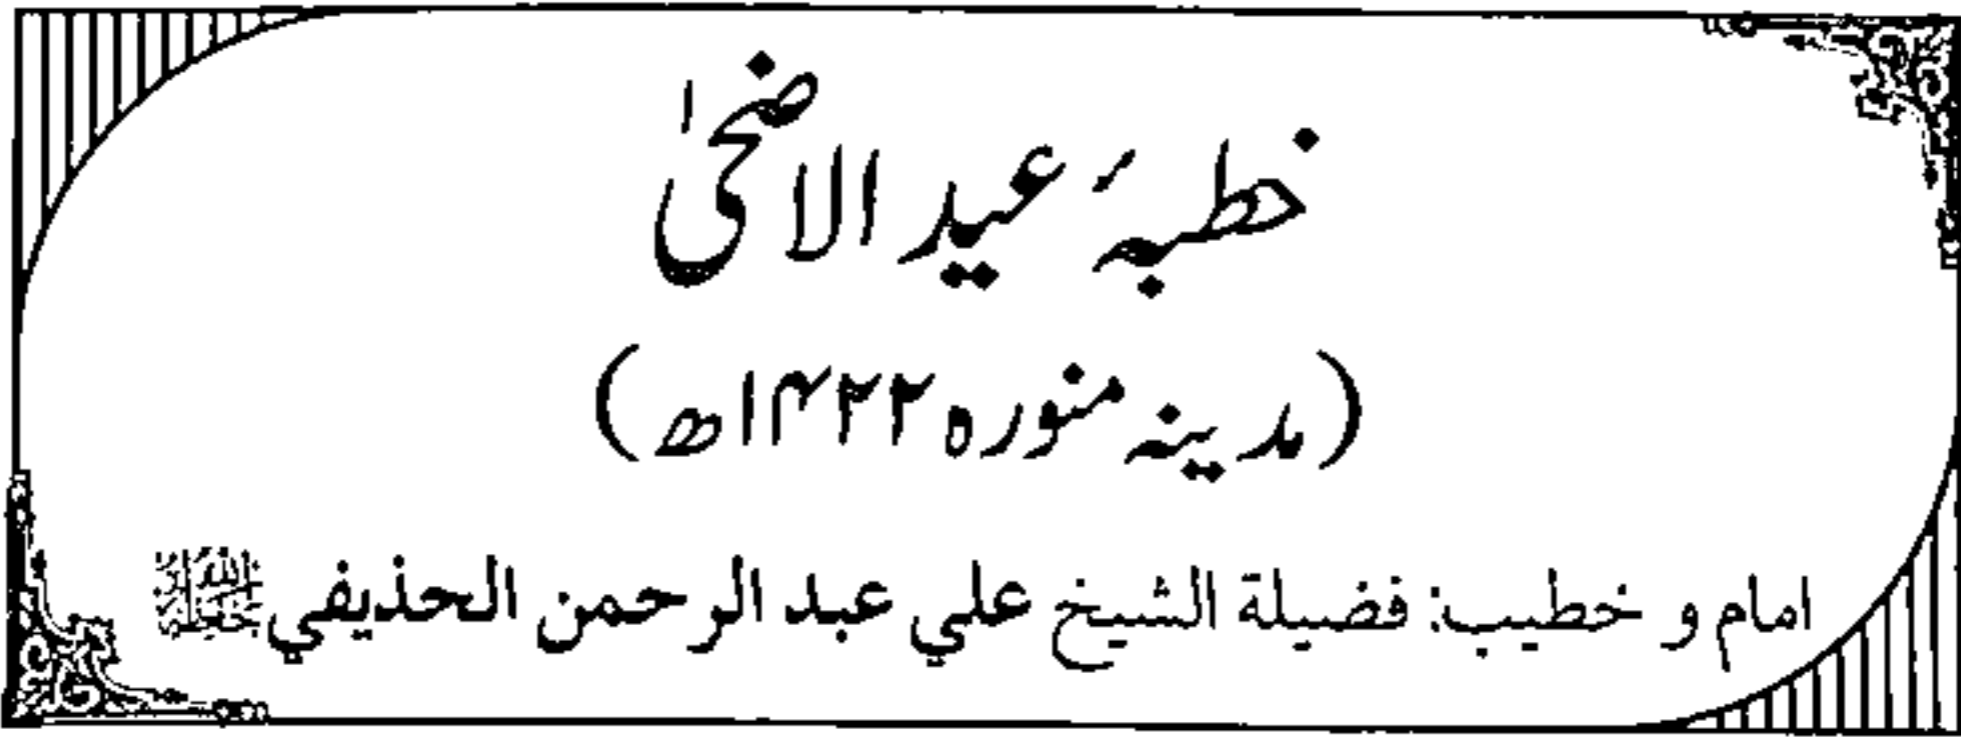 خطبۂ عید الاضحیٰ
(مدینہ منورہ ۱۴۲۲ھ)
امام و خطیب: فضیلة الشیخ علي عبد الرحمن الحذيفي